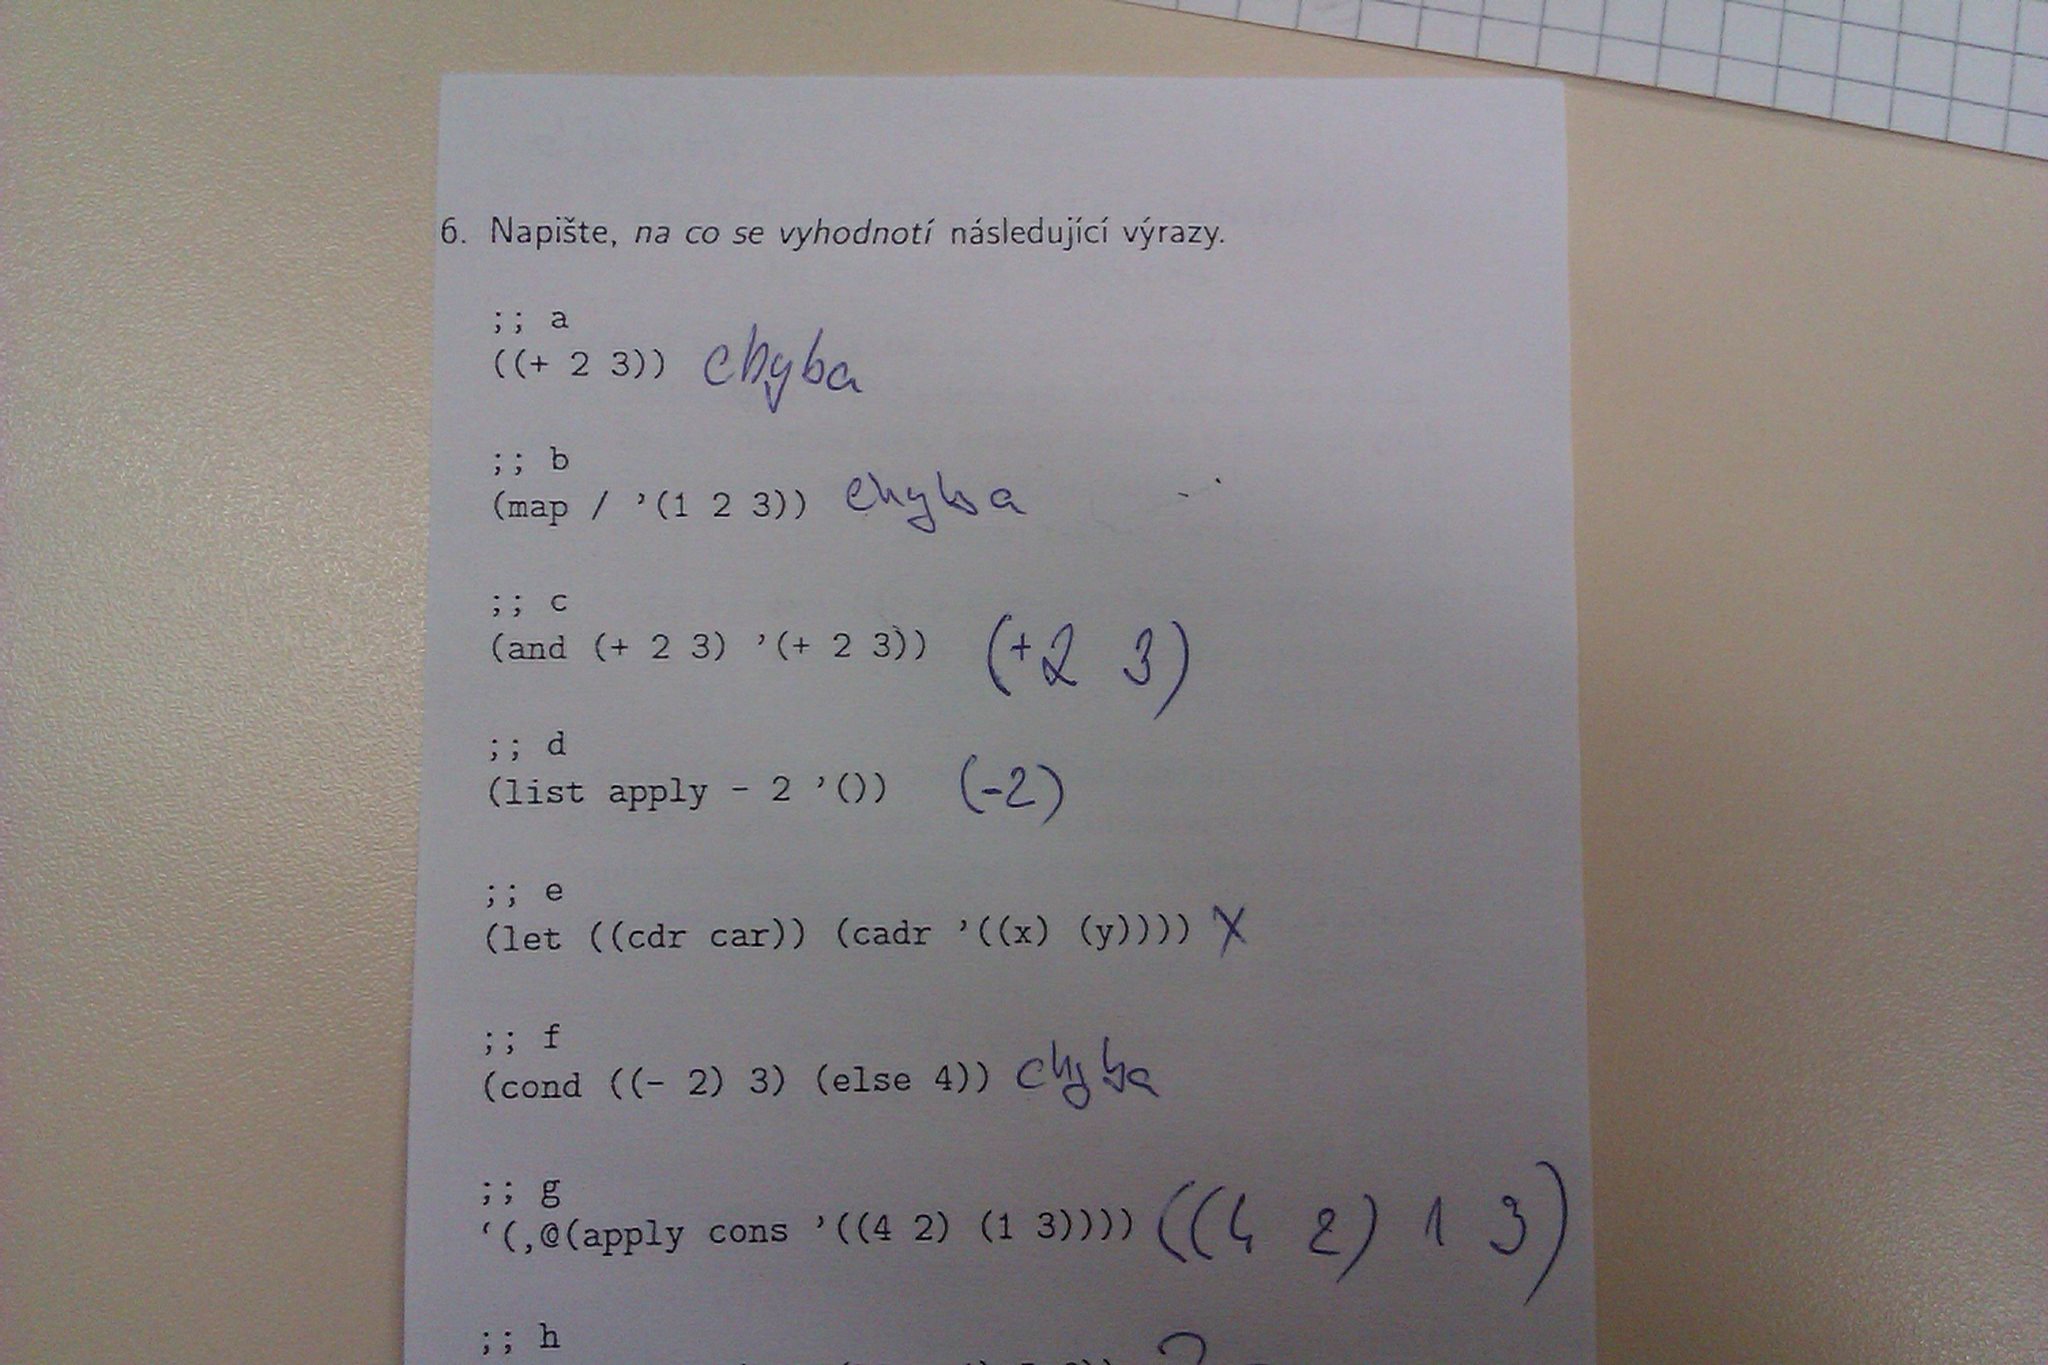 6. Napište, na co se vyhodnotí následující výrazy.
;; a
((+ 2 3)) chyba
;; b
(map / '(1 2 3)) chyba
;; c
(and (+ 2 3) '(+ 2 3)) (+2 3)
;; d
(list apply - 2 '()) (-2)
;; e
(let ((cdr car)) (cadr '((x) (y)))) x
;; f
(cond ((- 2) 3) (else 4)) chyba
;; g
‘(,@(apply cons '((4 2) (1 3)))) ((4 2) 1 3)
;; h